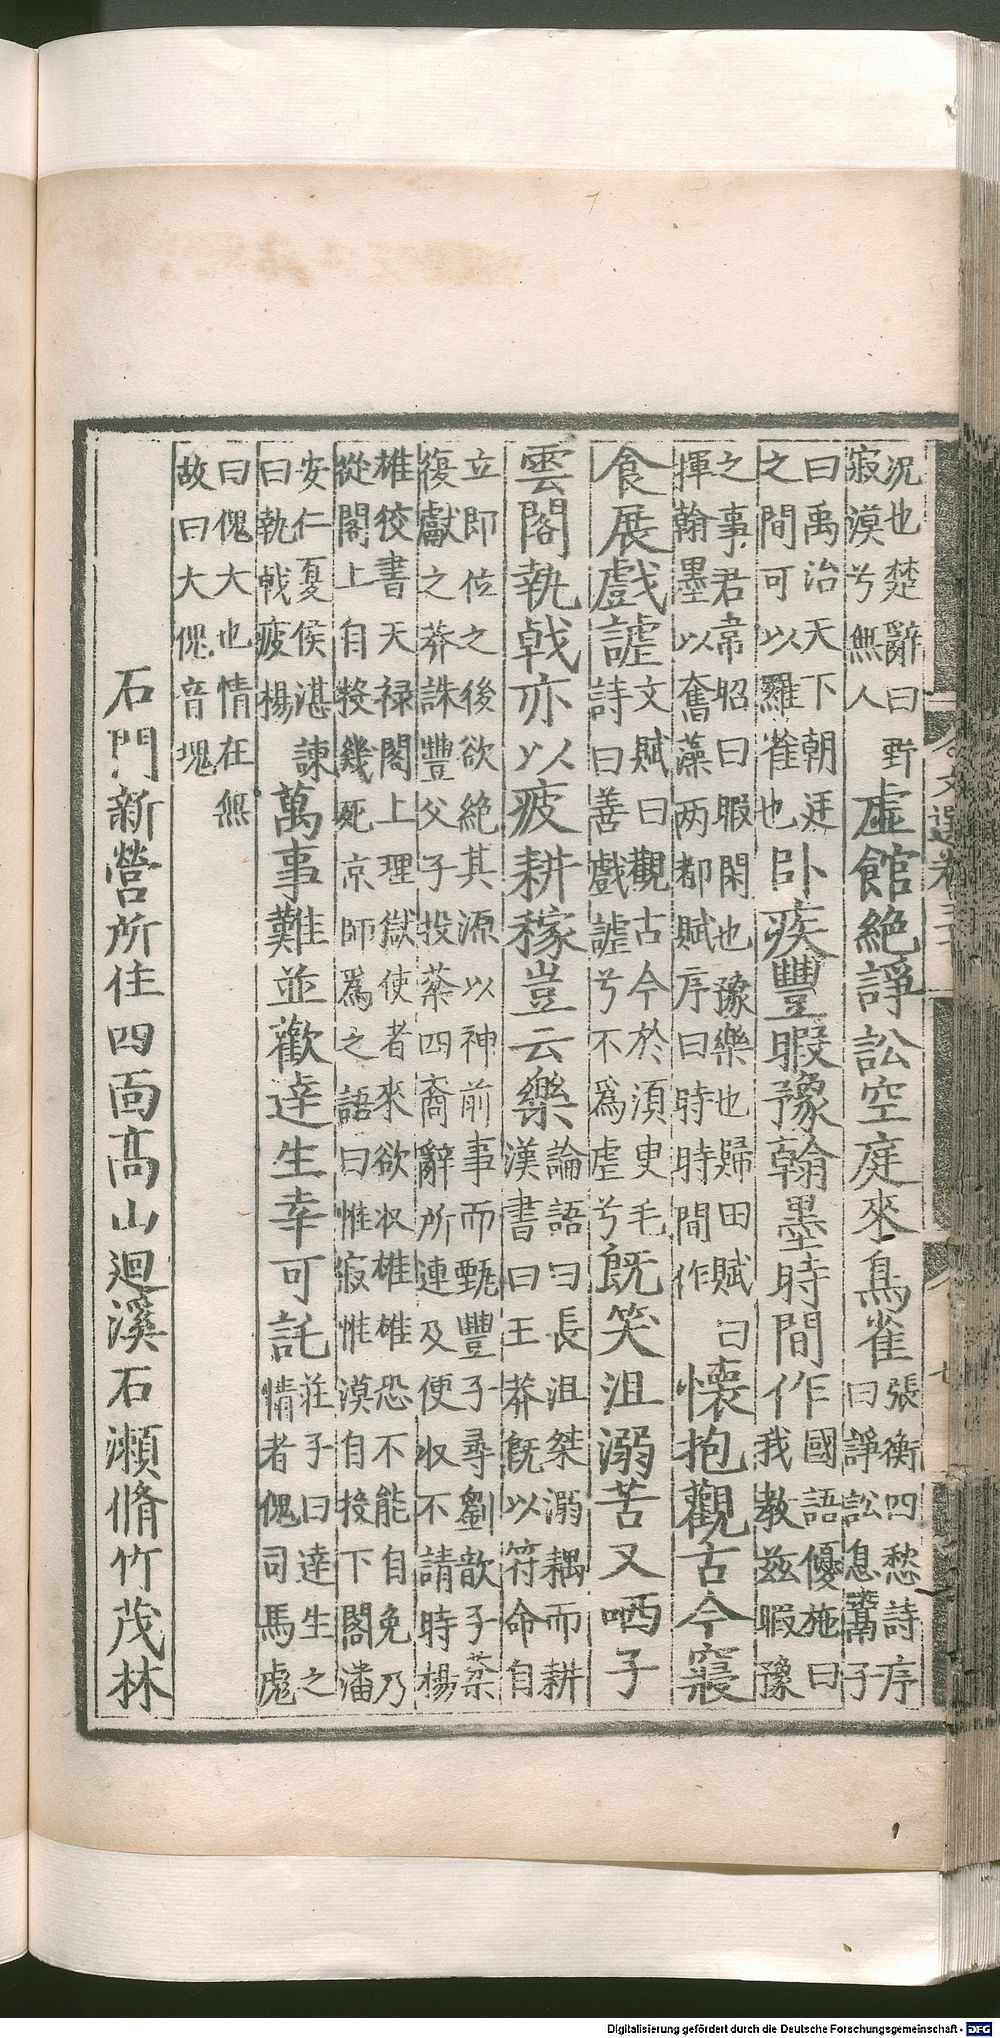 況也楚辭曰野
寂漠兮無人
虛館絕諍訟空庭來鳥雀
張衡四愁詩序
曰諍訟息鬻子
曰禹治天下朝廷
之間可以羅雀也
卧疾豐暇豫翰墨時間作
國語優施曰
我教茲暇豫
之事君韋昭曰暇閑也豫樂也歸田賦曰
揮翰墨以奮藻两都賦序曰時時間作
懷抱觀古今寢
食展戲謔
文賦曰觀古今於湏臾毛
詩曰善戲謔兮不爲虐兮
旣笑沮溺苦又哂子
雲閣執戟亦以疲耕稼豈云樂
論語曰長沮桀溺耦而耕
漢書曰王莽旣以符命自
立即位之後欲絕其源以神前事而甄豐子尋劉歆子棻
復獻之莽誅豐父子投棻四裔辭所連及便収不請時楊
雄校書天禄閣上理獄使者來欲収雄雄恐不能自免乃
從閣上自投幾死京師爲之語曰惟寂惟漠自投下閣潘
安仁夏侯湛誄
曰執戟疲楊
萬事難並歡達生幸可託
莊子曰達生之
情者傀司馬彪
曰傀大也情在無
故曰大傀音瑰
石門新營所住四面高山迴溪石瀨脩竹茂林
Digitalisierung gefördert durch die Deutsche Forschungsgemeinschaft - DFG